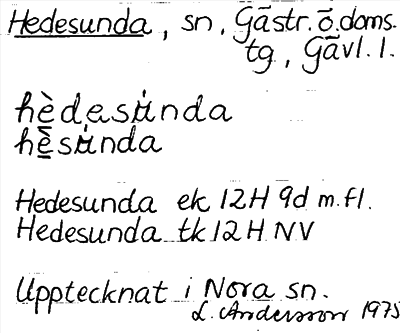 Hedesunda, sn, Gästr. ö. doms.
tg, Gävl. l.
hèdasu̇nda
hē̖su̇nda
Hedesunda ek 12H 9d m.fl.
Hedesunda tk 12H NV
Upptecknat i Nora sn.
L. Andersson 1975